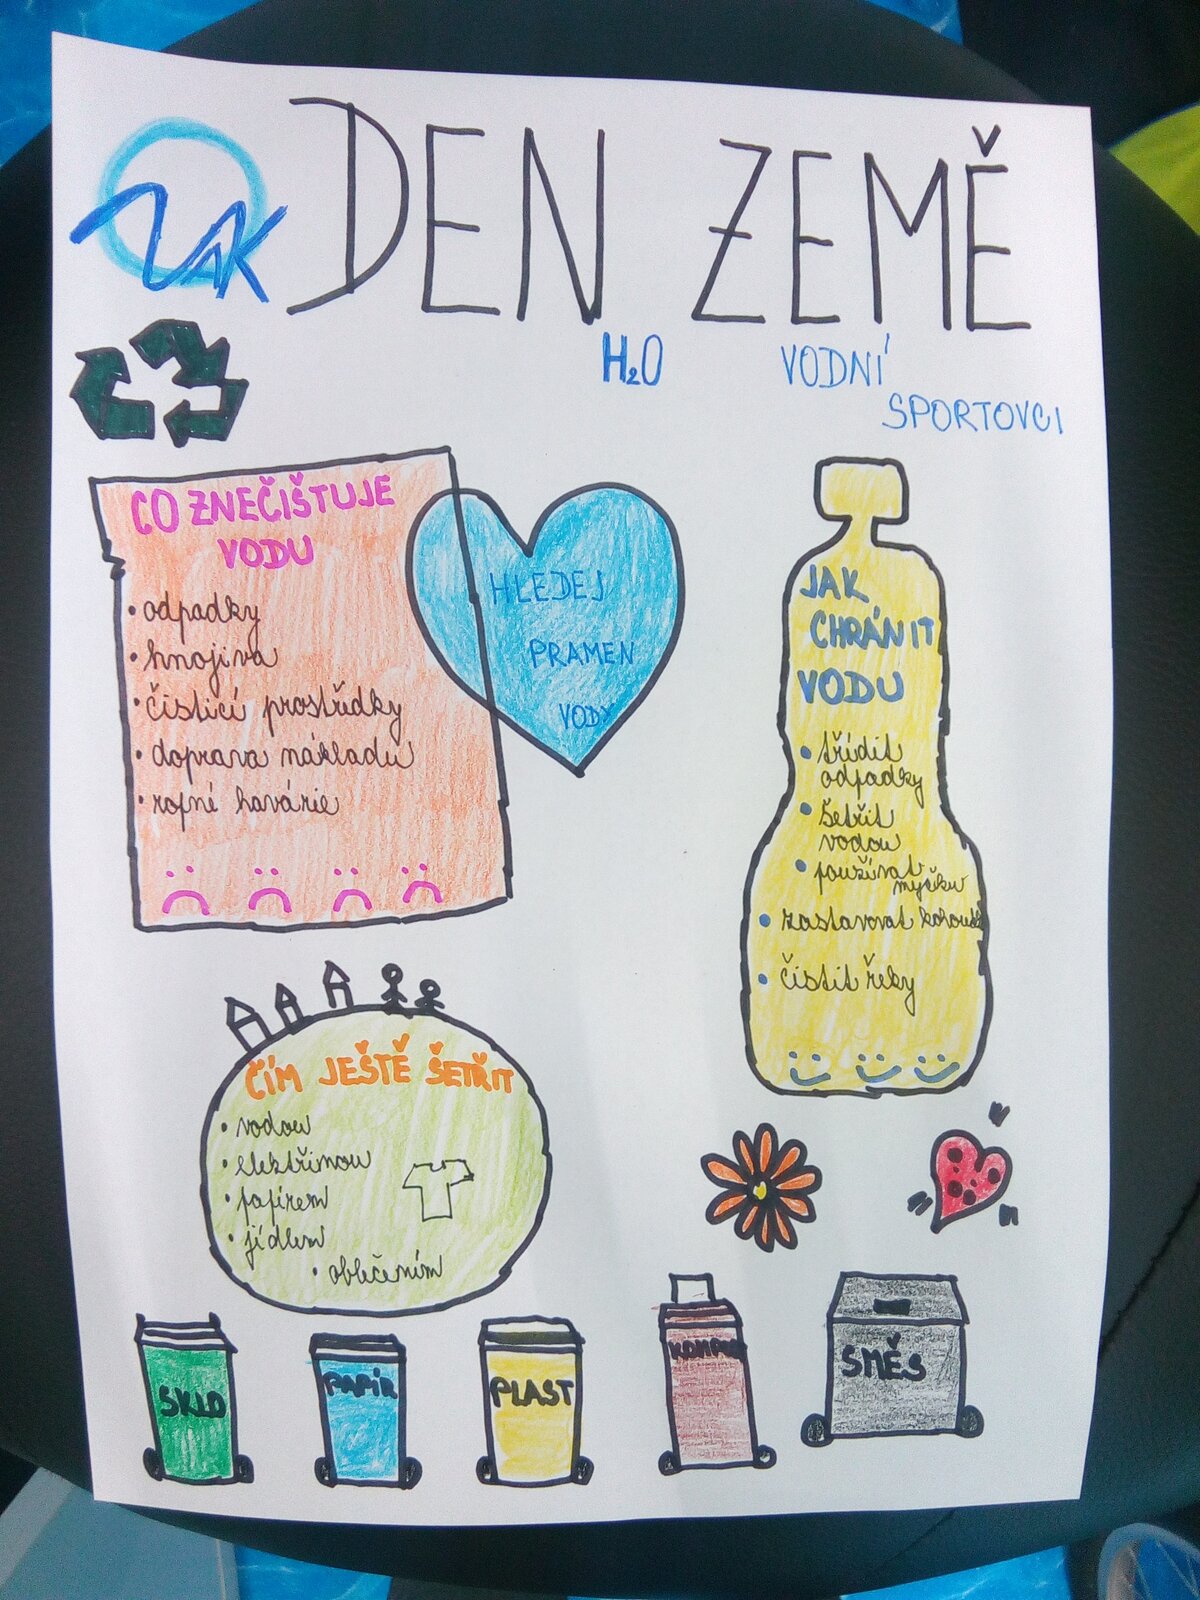 VAK
DEN ZEMĚ
H₂O
VODNÍ
SPORTOVCI
CO ZNEČIŠTUJE
VODU
• odpadky
• hnojiva
• čistící prostředky
• doprava nákladu
• ropné havárie
HLEDEJ
PRAMEN
VODY
JAK
CHRÁNIT
VODU
• třídit
odpadky
• šetřit
vodou
• používat
myčku
• zastavovat
• čistit řeky
ČÍM JEŠTĚ ŠETŘIT
• vodou
• elektřinou
• papírem
• jídlem
• oblečením
SKLO
PAPÍR
PLAST
SMĚS